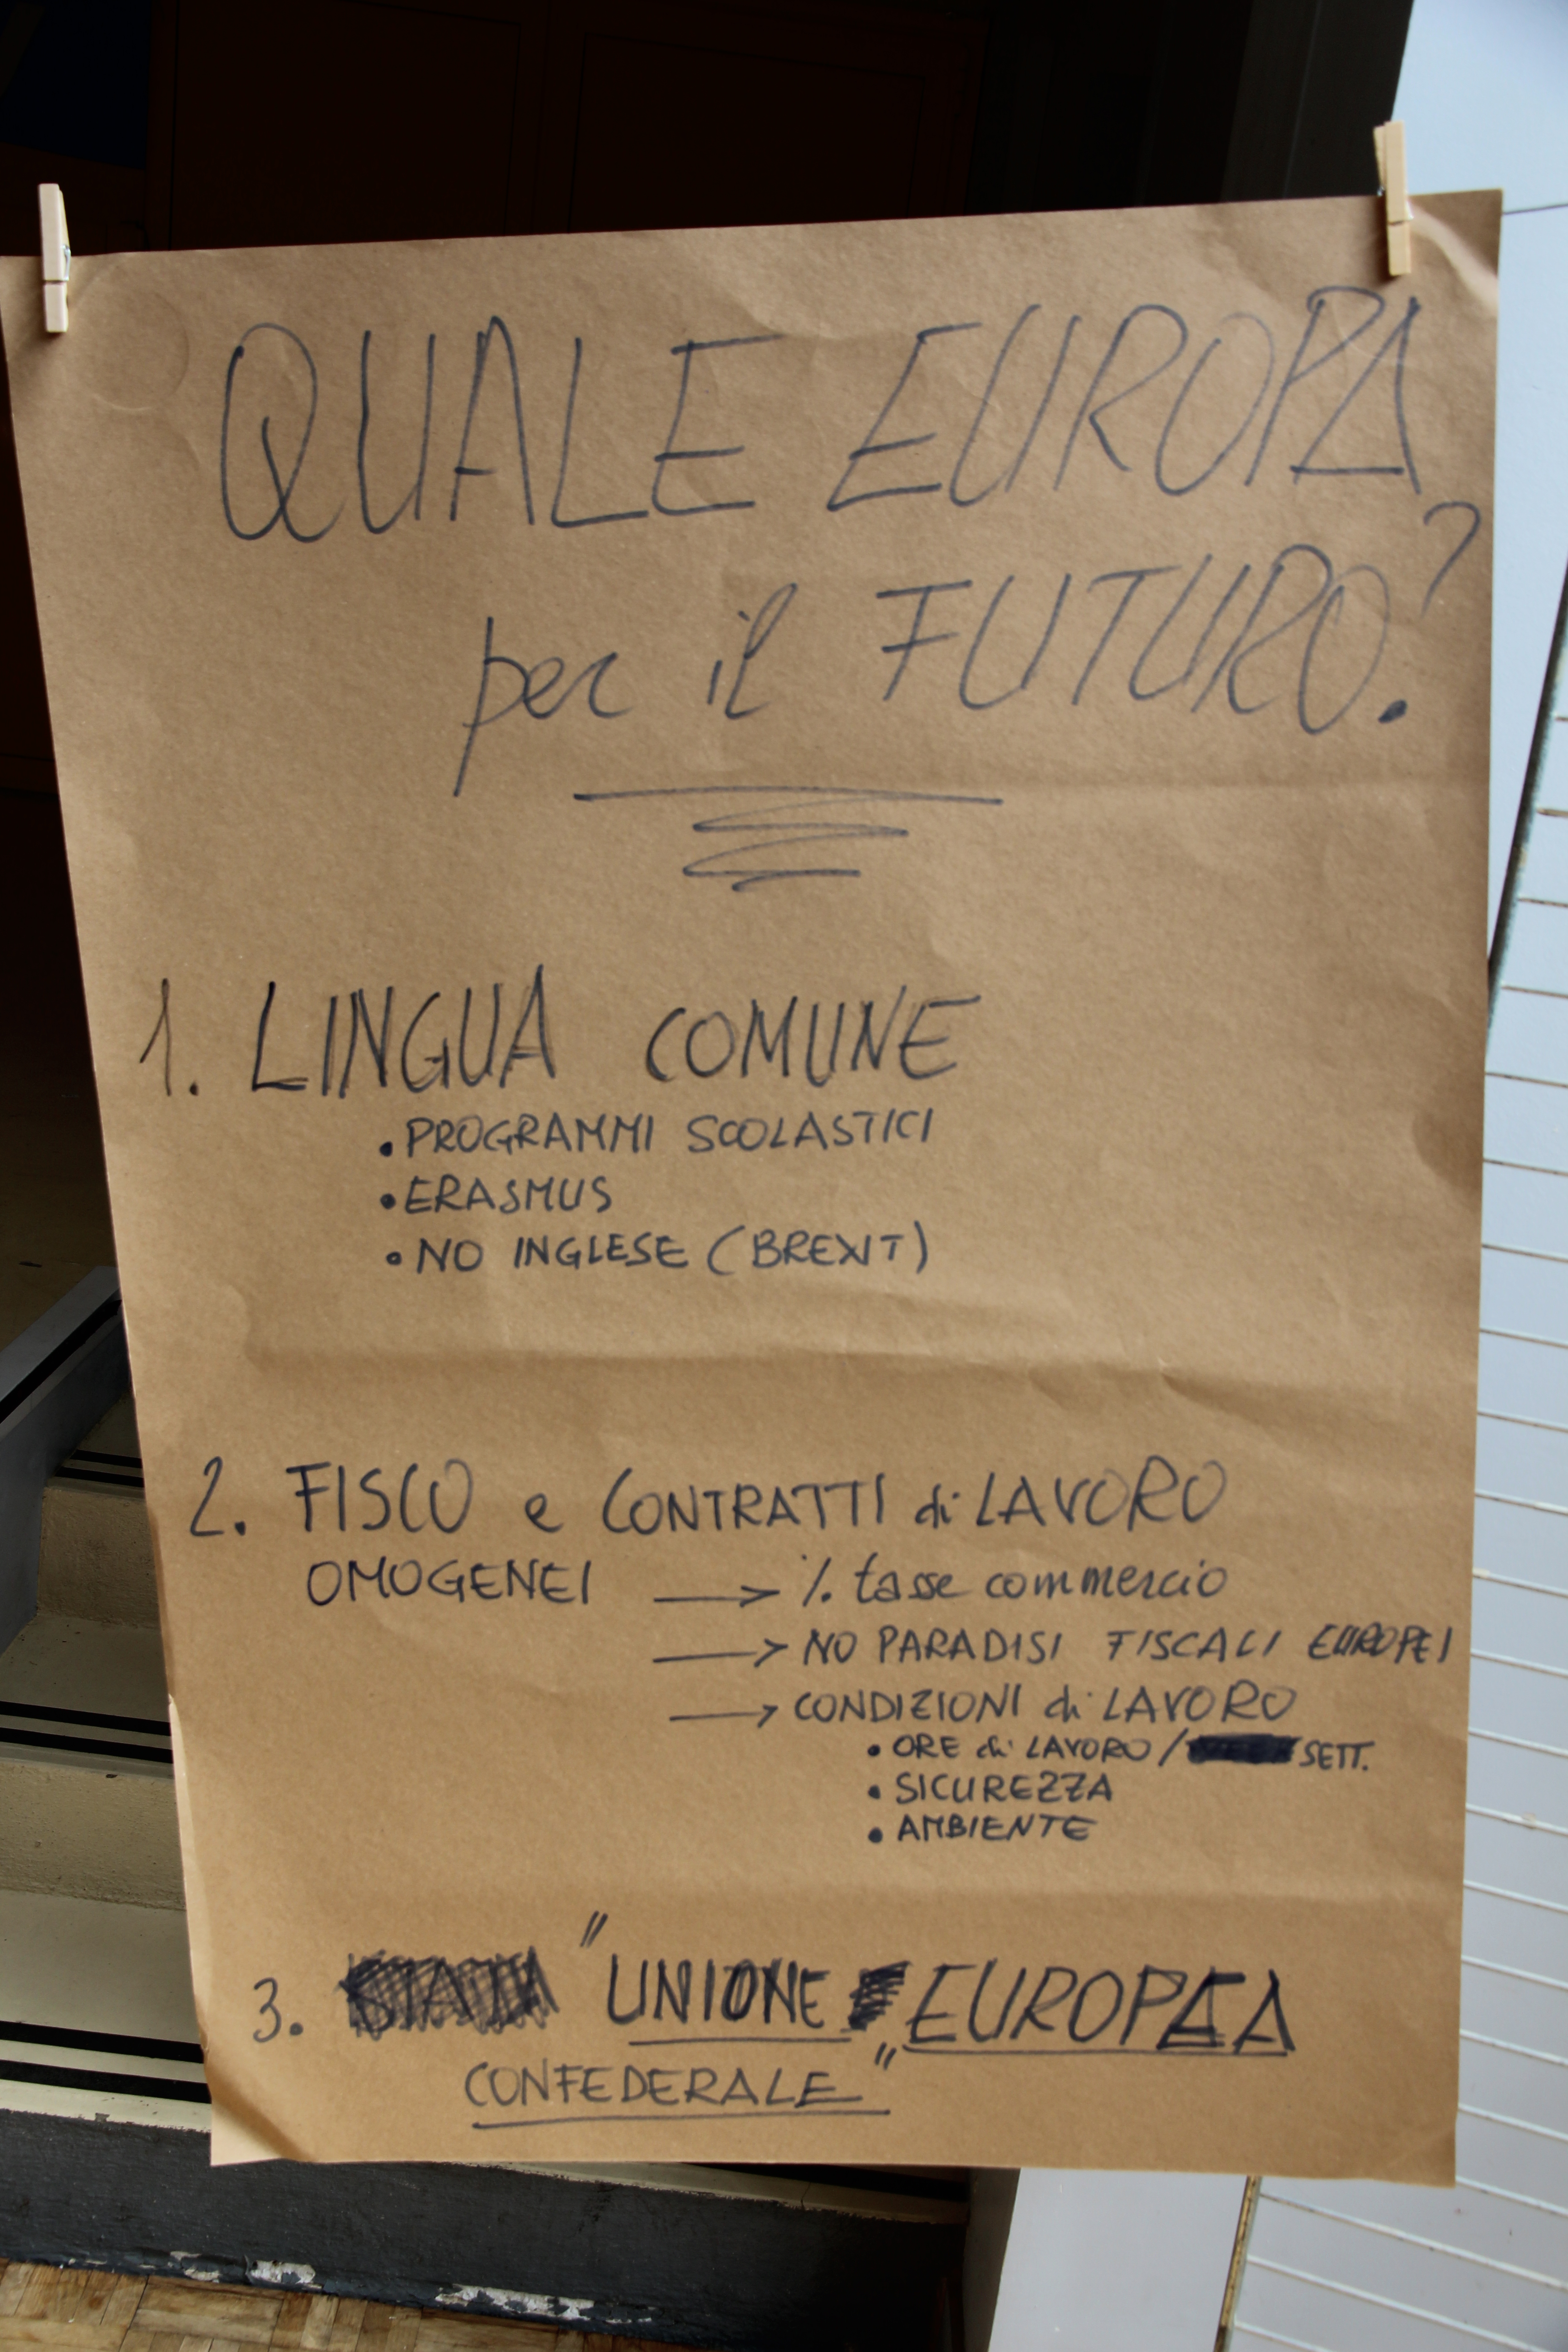 QUALE EUROPA
per il FUTURO.?
1. LINGUA COMUNE
• PROGRAMMI SCOLASTICI
• ERASMUS
• NO INGLESE (BREXIT)
2. FISCO e CONTRATTI di LAVORO
OMOGENEI → % tasse commercio
→ NO PARADISI FISCALI EUROPEI
→ CONDIZIONI di LAVORO
• ORE di LAVORO / SETT.
• SICUREZZA
• AMBIENTE
3. "UNIONE EUROPEA
CONFEDERALE"